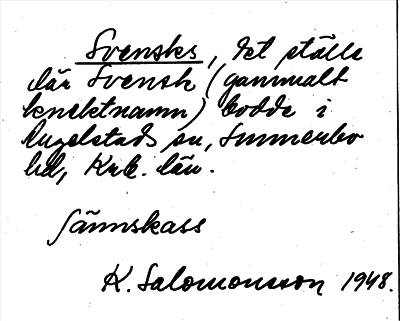 Svensks, det ställe
där Svensk (gammalt
knektnamn) bodde i
Ångelstads sn, Sunnerbo
hd, Krb. län.
Sännskass
K. Salomonsson 1948.